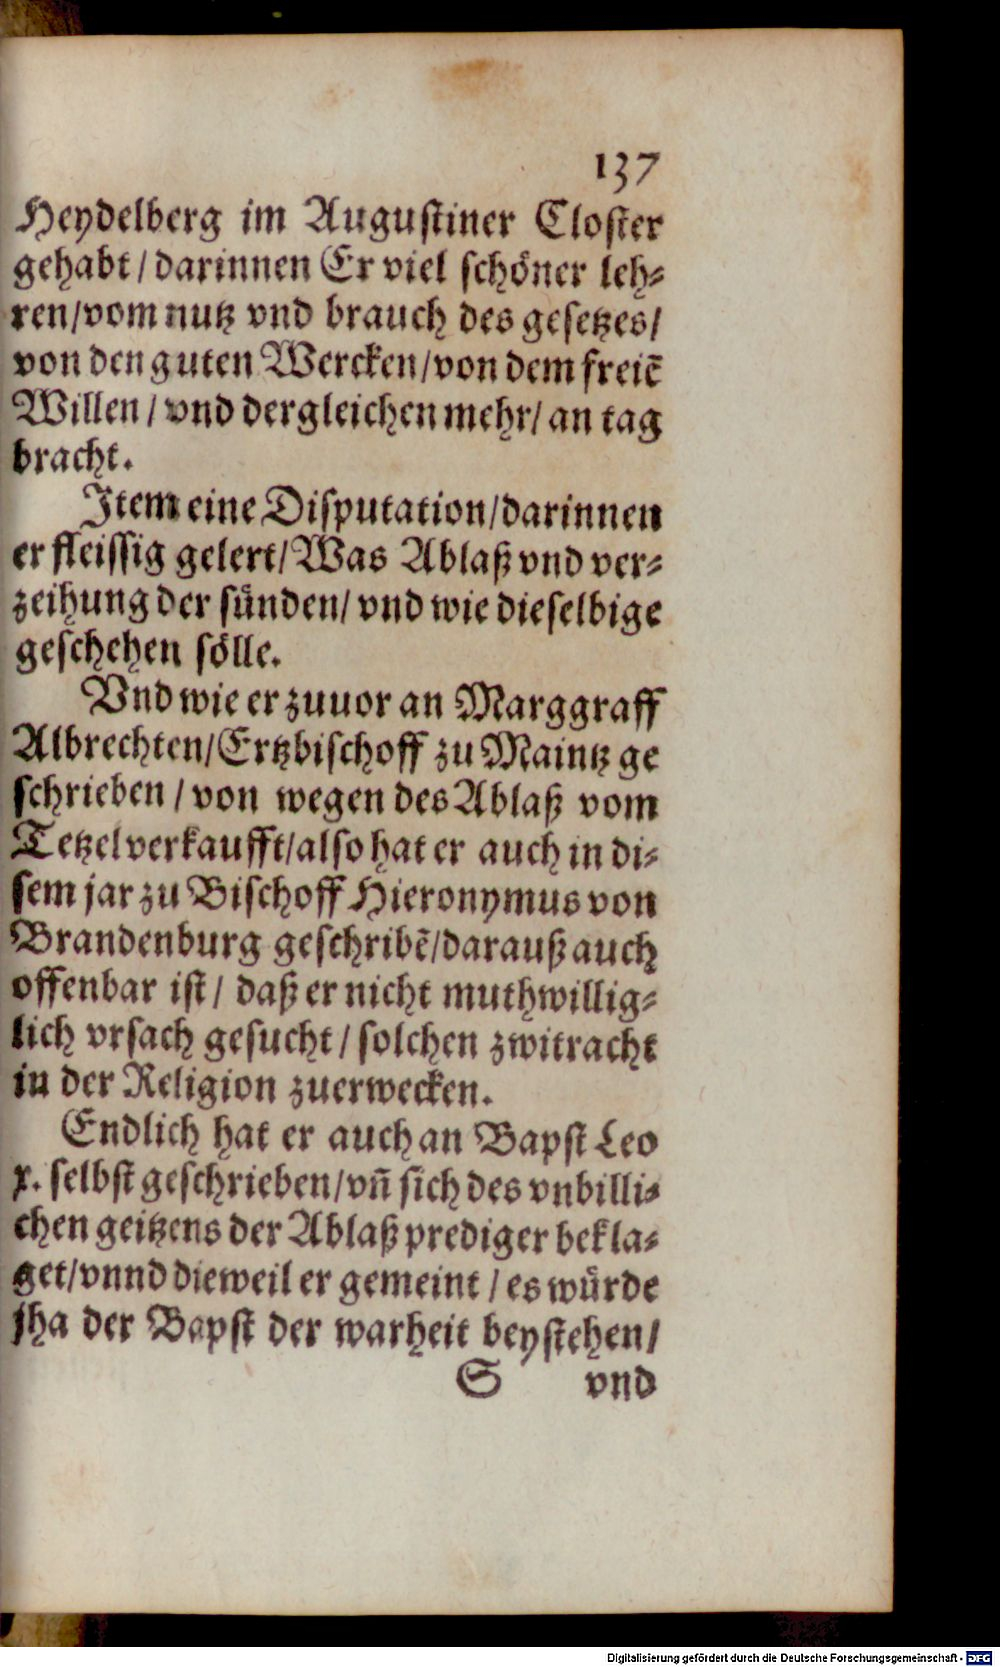 137
Heydelberg im Augustiner Closter
gehabt / darinnen Er viel schöner leh-
ren/vom nutz vnd brauch des gesetzes/
von den guten Wercken/von dem freiē
Willen / vnd dergleichen mehr/ an tag
bracht.
Item eine Disputation/darinnen
er fleissig gelert/Was Ablaß vnd ver-
zeihung der sünden/ vnd wie dieselbige
geschehen sölle.
Vnd wie er zuuor an Marggraff
Albrechten/Ertzbischoff zu Maintz ge
schrieben / von wegen des Ablaß vom
Tetzel verkaufft/also hat er auch in di-
sem jar zu Bischoff Hieronymus von
Brandenburg geschribē/darauß auch
offenbar ist/ daß er nicht muthwillig-
lich vrsach gesucht / solchen zwitracht
in der Religion zuerwecken.
Endlich hat er auch an Bapst Leo
x. selbst geschrieben/vñ sich des vnbilli-
chen geitzens der Ablaß prediger bekla-
get/vnnd dieweil er gemeint / es würde
jha der Bapst der warheit beystehen/
S vnd
Digitalisierung gefördert durch die Deutsche Forschungsgemeinschaft - DFG